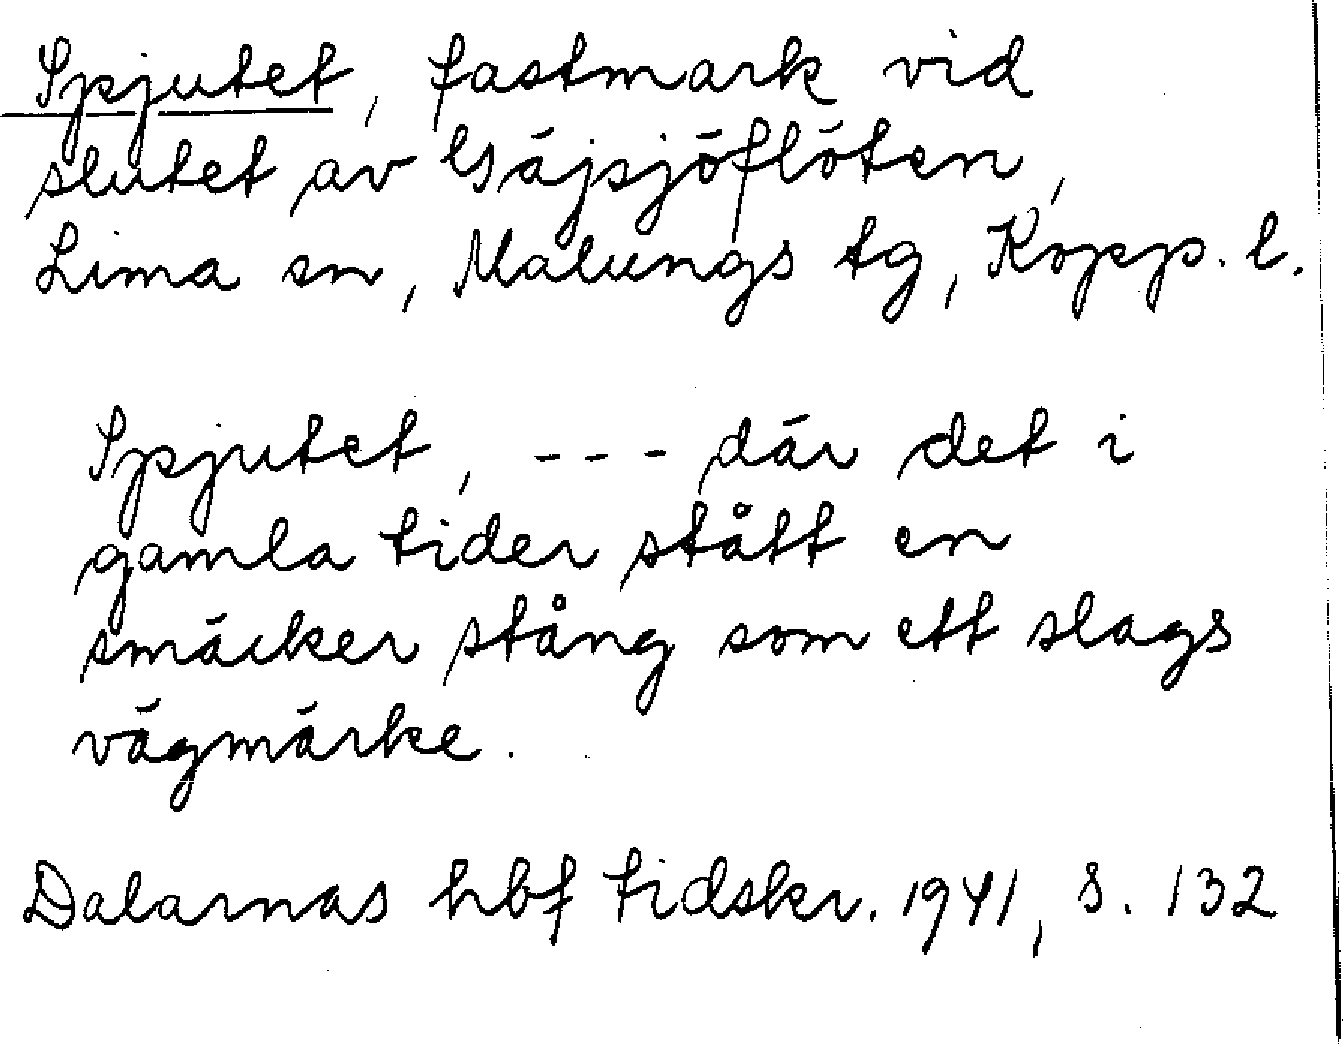 Spjutet, fastmark vid
slutet av Gäjsjöflöten,
Lima sn, Malungs tg, Kopp. l.
Spjutet, --- där det i
gamla tider stått en
smäcker stång som ett slags
vägmärke.
Dalarnas hbf tidskr. 1941, s. 132